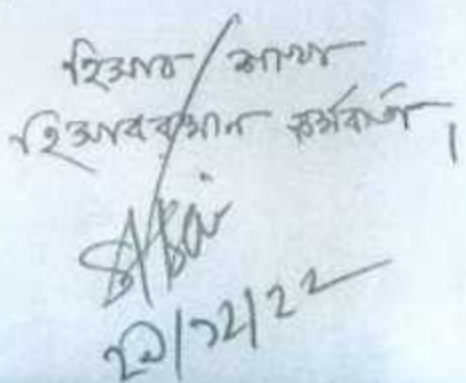 হিসাব/শাখা
হিসাবরক্ষণ কর্মকর্তা,
২৯/১২/২২